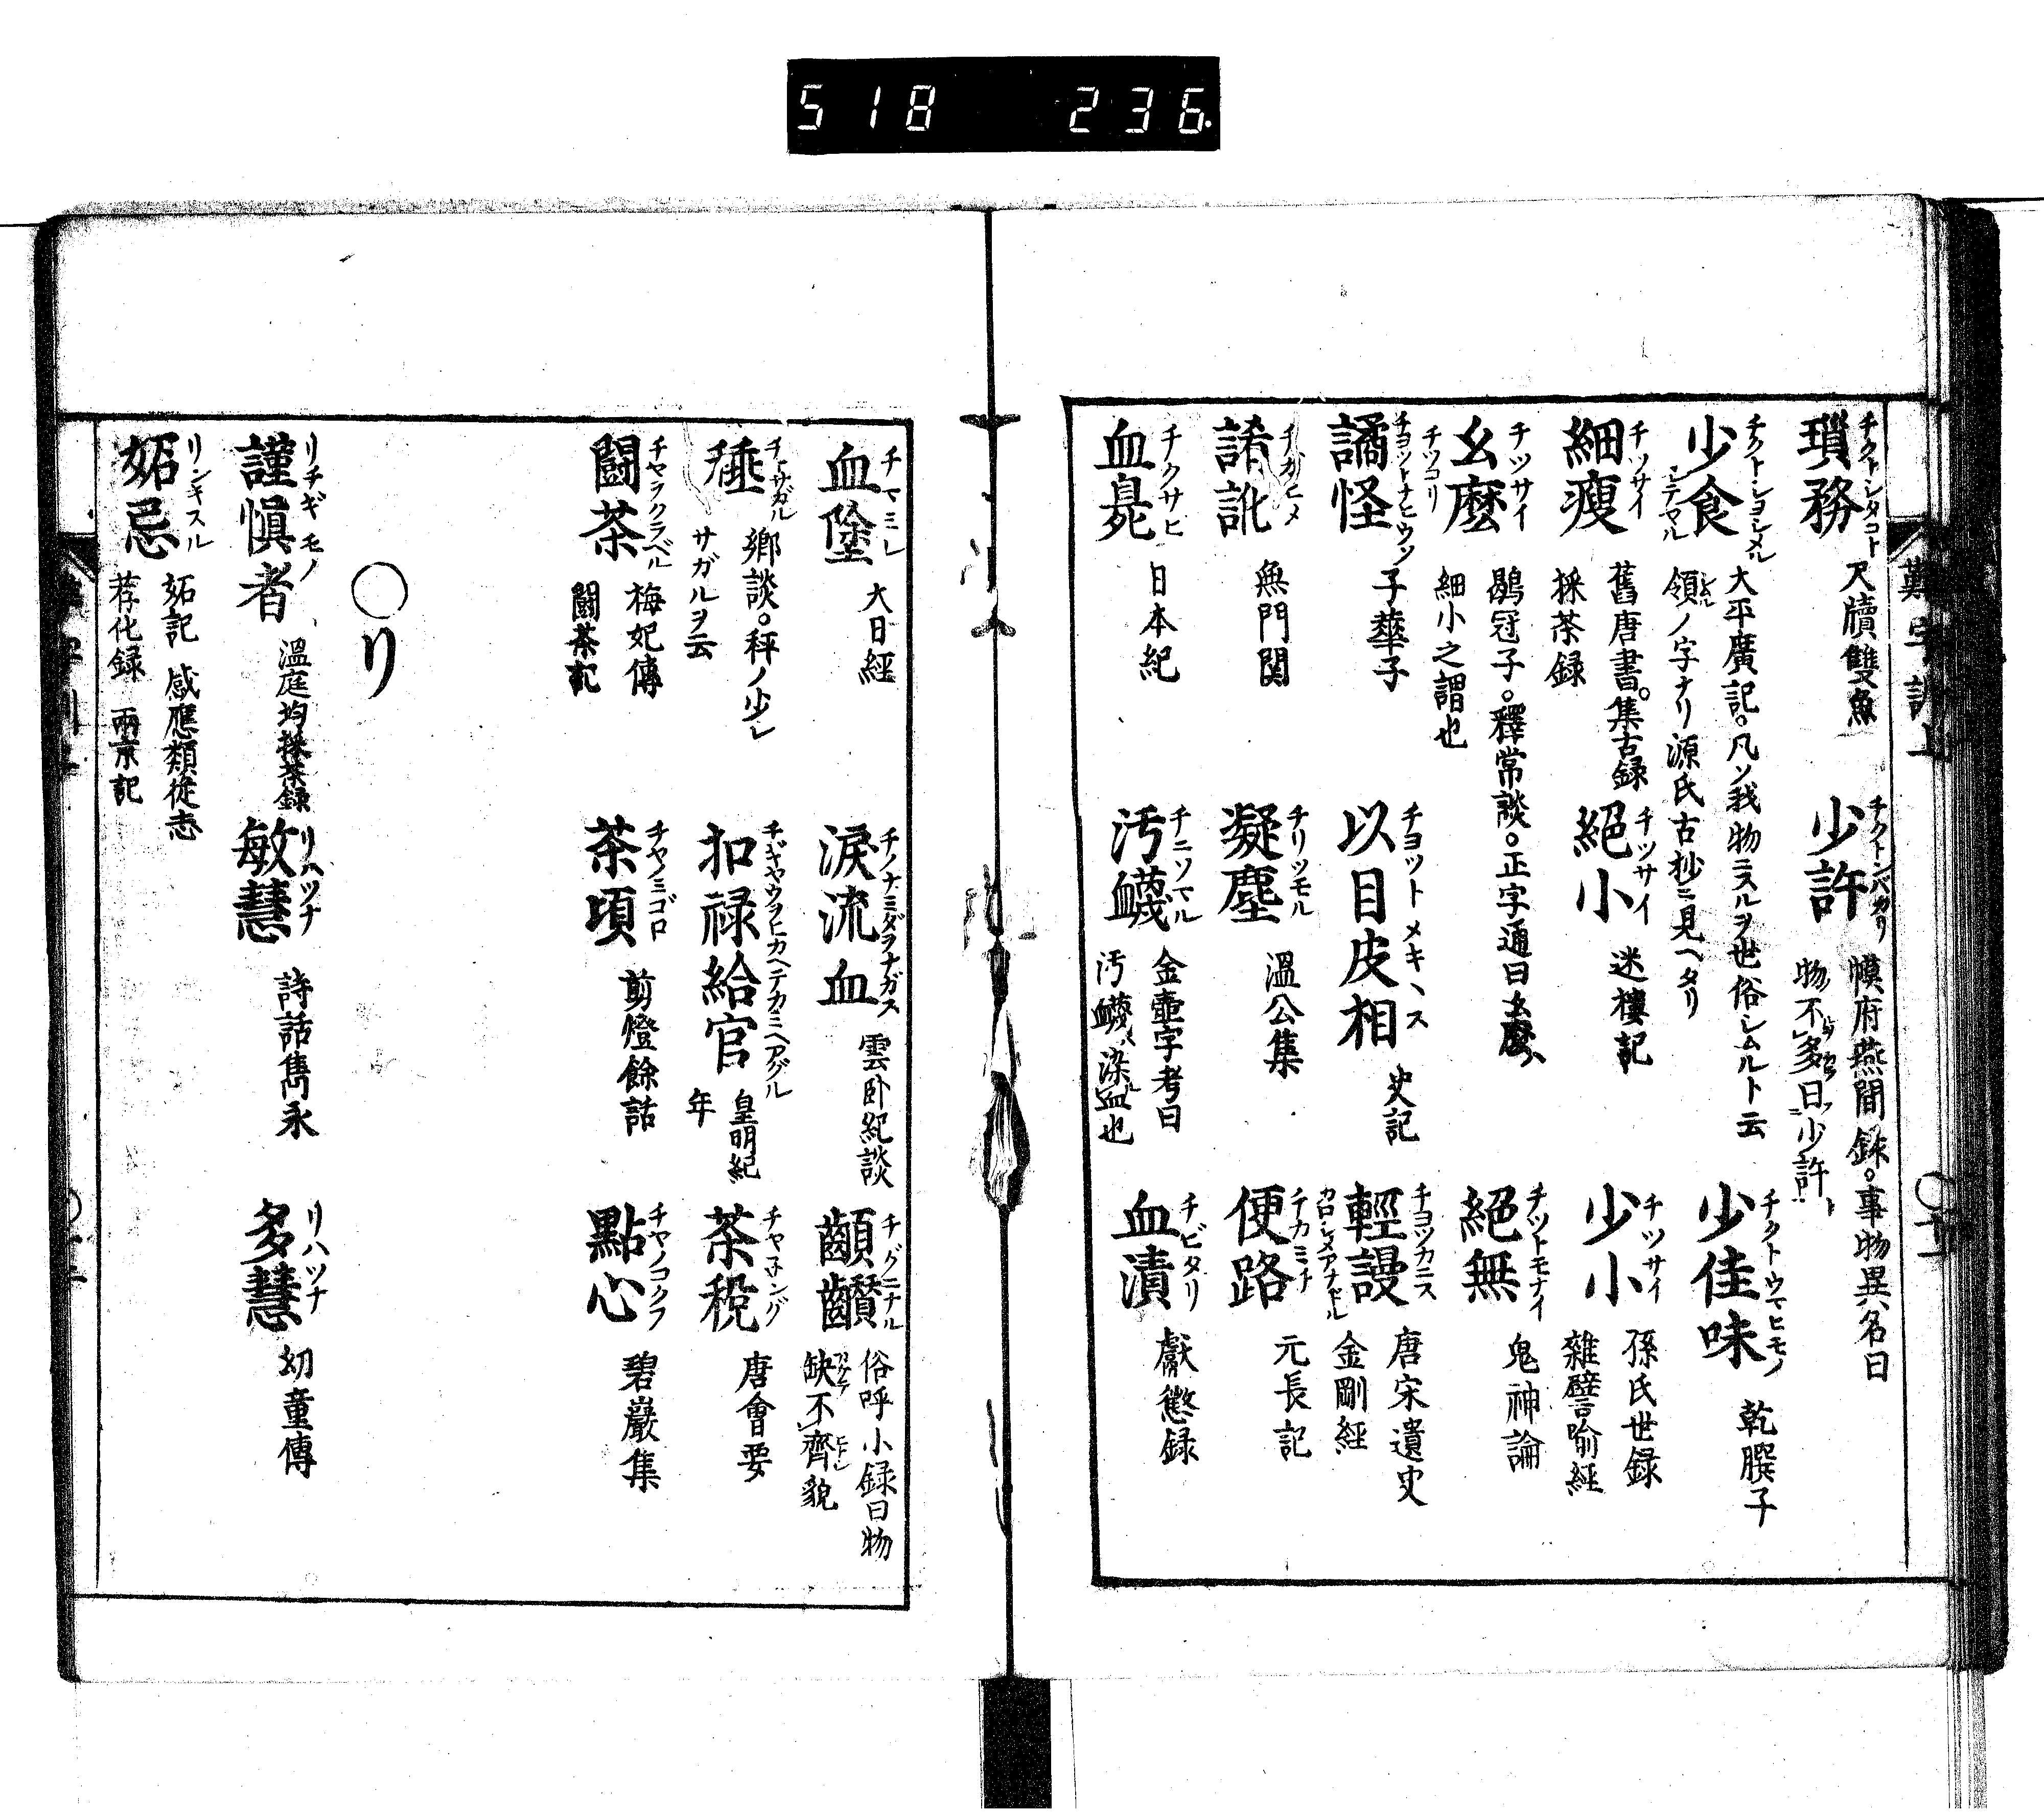 518 236
瑣務 チクトシタコト 尺牘雙魚
少許 チクトンバカリ 幞府燕間録。事物異名曰
物不多曰少許
少食 チクトシヨシメル 大平廣記。凡ソ我物ニスルヲ世俗シムルト云
領ノ字ナリ源氏古抄ニ見ヘタリ
少佳味 チクトウマヒモノ 乾䐑子
細瘦 チソサイ 舊唐書。集古録
採茶録
絕小 チツサイ 迷樓記
少小 チツサイ 孫氏世録
雜譬喻經
幺麽 チツサイ チツコリ 鶡冠子。釋常談。正字通曰幺麽
細小之謂也
絕無 チツトモナイ 鬼神論
譎怪 チヨツトナヒウソ 子華子
以目皮相 チヨツトメキヽス 史記
輕謾 チヨツカニス カロシメアナドル 唐宋遺史
金剛経
誵訛 チガヒメ 魚門関
凝塵 チリツモル 溫公集
便路 チカミチ 元長記
血臰 チクサヒ 日本紀
汚衊 チニソマル 金壷字考曰
汚衊染血也
血漬 チビタリ 獻懲録
血塗 チマミレ 大日経
淚流血 チノナミダヲナガス 雲卧紀談
顱齇 チグニナル 俗呼小録曰物
缺不齊貌
郷談。秤ノ少シ
サガルヲ云
扣禄給官 チギヤウヲヒカヘテカミヘアグル 皇明紀
年
茶稅 唐會要
闘茶 チヤヲクラベル 梅妃傳
闘茶記
茶頃 チヤノミゴロ 剪燈餘話
點心 チヤノコクフ 碧巖集
○リ
謹愼者 リチギモノ 溫庭均採茶録
敏慧 リハツナ 詩話雋永
多慧 リハツナ 幼童傳
妬忌 リンキスル 妬記 感應類從志
荐化録 兩京記